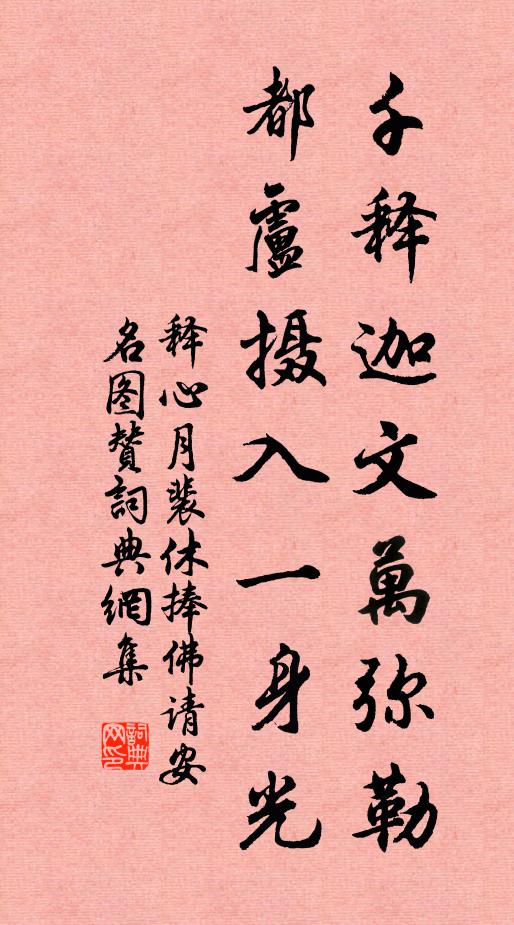 千释迦文萬弥勒
都盧摄入一身光
释心月裴休捧佛请安
名图赞詞典網集
詞典
网印